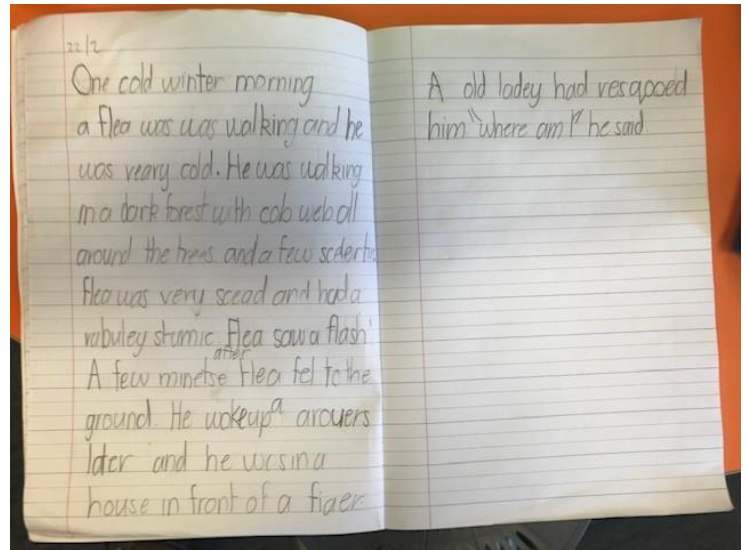 22/2
One cold winter morning
a flea was was walking and he
was veary cold. He was walking
in a dark forest with cob web all
around the trees. and a few
flea was very scead and had a
wabuley stumic. Flea saw a flash
after
A few minetse Flea fel to the
ground. He wokeup a arouers
later and he was in a
house in front of a fiaer
A old ladey had
him "where am I" he said.